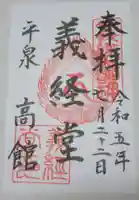 奉拝
令和五年
七月二十二日
義経堂
平泉
高館